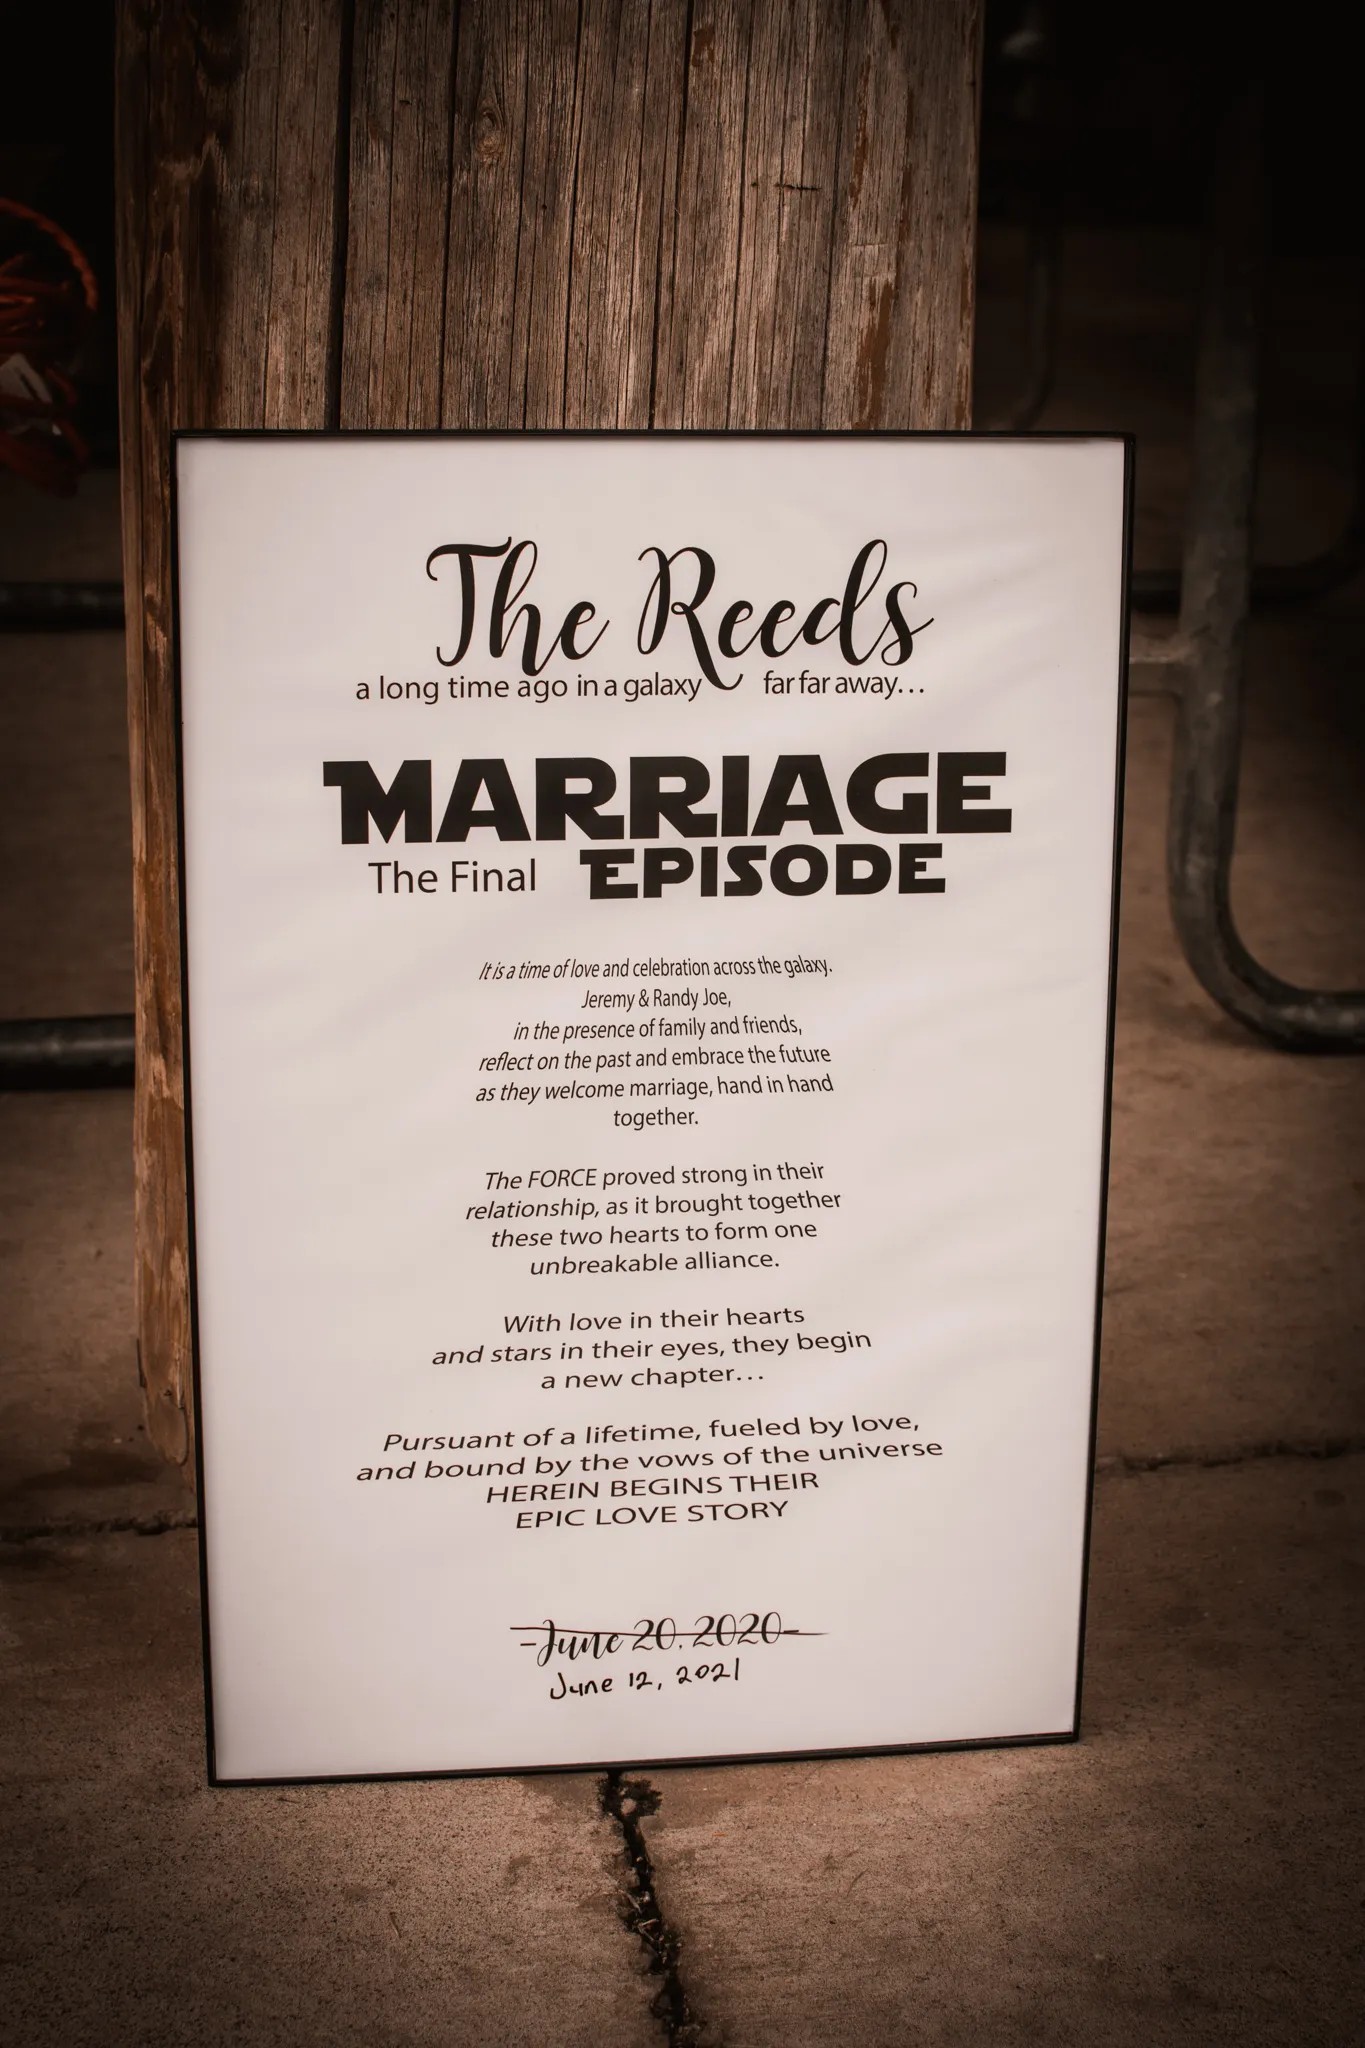 The Reeds
a long time ago in a galaxy far far away...
MARRIAGE
The Final EPISODE
It is a time of love and celebration across the galaxy.
Jeremy & Randy Joe,
in the presence of family and friends,
reflect on the past and embrace the future
as they welcome marriage, hand in hand
together.
The FORCE proved strong in their
relationship, as it brought together
these two hearts to form one
unbreakable alliance.
With love in their hearts
and stars in their eyes, they begin
a new chapter...
Pursuant of a lifetime, fueled by love,
and bound by the vows of the universe
HEREIN BEGINS THEIR
EPIC LOVE STORY
-June 20, 2020-
June 12, 2021